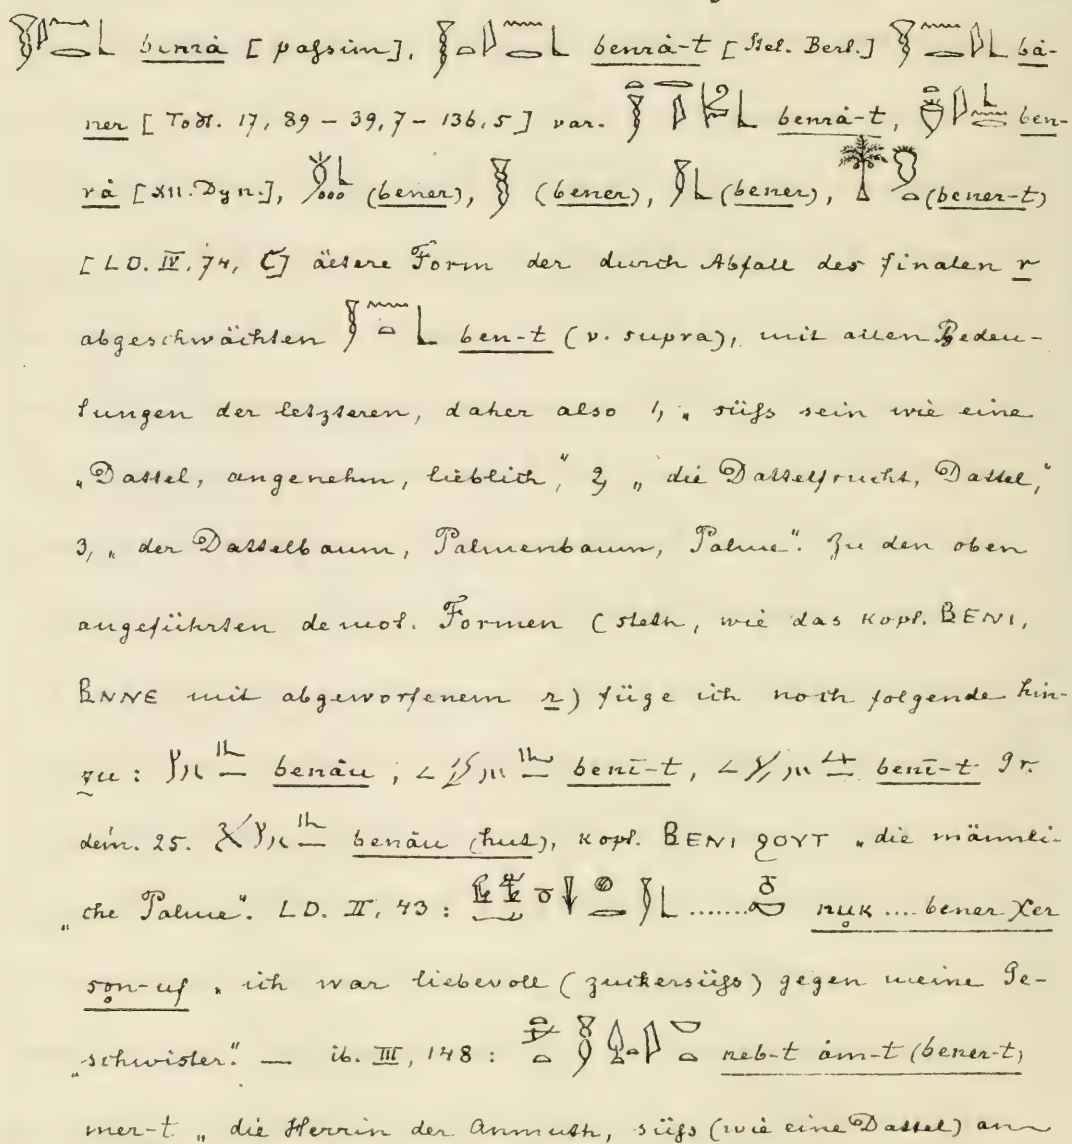 benrȧ [passim], benrȧ-t [Stel. Berl.] bȧ-
ner [Todt. 17, 89 – 39, 7 – 136, 5] var. benrȧ-t, ben-
rȧ [XII. Dyn.], (bener), (bener), (bener), (bener-t)
[LD. IV. 74, C] ältere Form der durch Abfall des finalen r
abgeschwächten ben-t (v. supra), mit allen Bedeu-
tungen der letzteren, daher also 1, „süß sein wie eine
„Dattel, angenehm, lieblich“, 2, „die Dattelfrucht, Dattel,“
3, „der Dattelbaum, Palmenbaum, Palme“. Zu den oben
angeführten demot. Formen (steth, wie das kopt. BENI,
BNNE mit abgeworfenem r) füge ich noch folgende hin-
zu: benȧu, benī-t, benī-t Gr.
dém. 25. benȧu (hut), kopt. BENI ϨΟΥΤ „die männli-
„che Palme“. LD. II, 43: ........ nuk .... bener χer
son-uf „ich war liebevoll (zuckersüß) gegen meine Ge-
„schwister“. — ib. III, 148: neb-t ȧm-t (bener-t)
mer-t „die Herrin der Anmuth, süß (wie eine Dattel) an